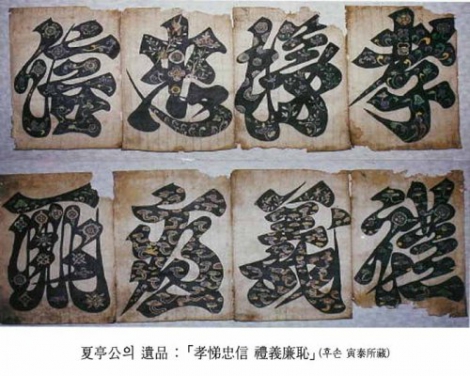 孝悌忠信
禮義廉恥
夏亭公의 遺品 : 「孝悌忠信 禮義廉恥」(후손 寅泰所藏)